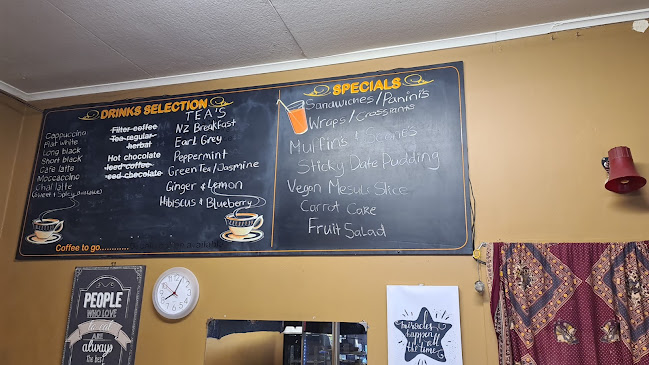 DRINKS SELECTION
Cappuccino
Flat white
Long black
Short black
Cafe latte
Moccaccino
Chai latte
(Sweet & Spicy available)
Filter coffee
Tea regular
herbal
Hot chocolate
Iced coffee
Iced chocolate
TEA'S
NZ Breakfast
Earl Grey
Peppermint
Green Tea/Jasmine
Ginger & Lemon
Hibiscus & Blueberry
Coffee to go............
SPECIALS
Sandwiches/Panini's
Wraps/Croissants
Muffins/
Sticky Date Pudding
Vegan Mesuli Slice
Carrot Cake
Fruit Salad
PEOPLE
WHO LOVE
to eat
ARE
always
the best
miracles
happen all
the time